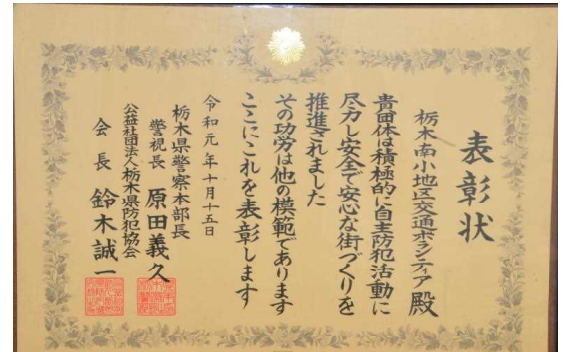 表彰状
栃木南小地区交通ボランティア殿
貴団体は積極的に自主防犯活動に
尽力し安全で安心な街づくりを
推進されました
その功労は他の模範であります
ここにこれを表彰します
令和元年十月十五日
栃木県警察本部長
警視長 原田義久
公益社団法人栃木県防犯協会
会長 鈴木誠一